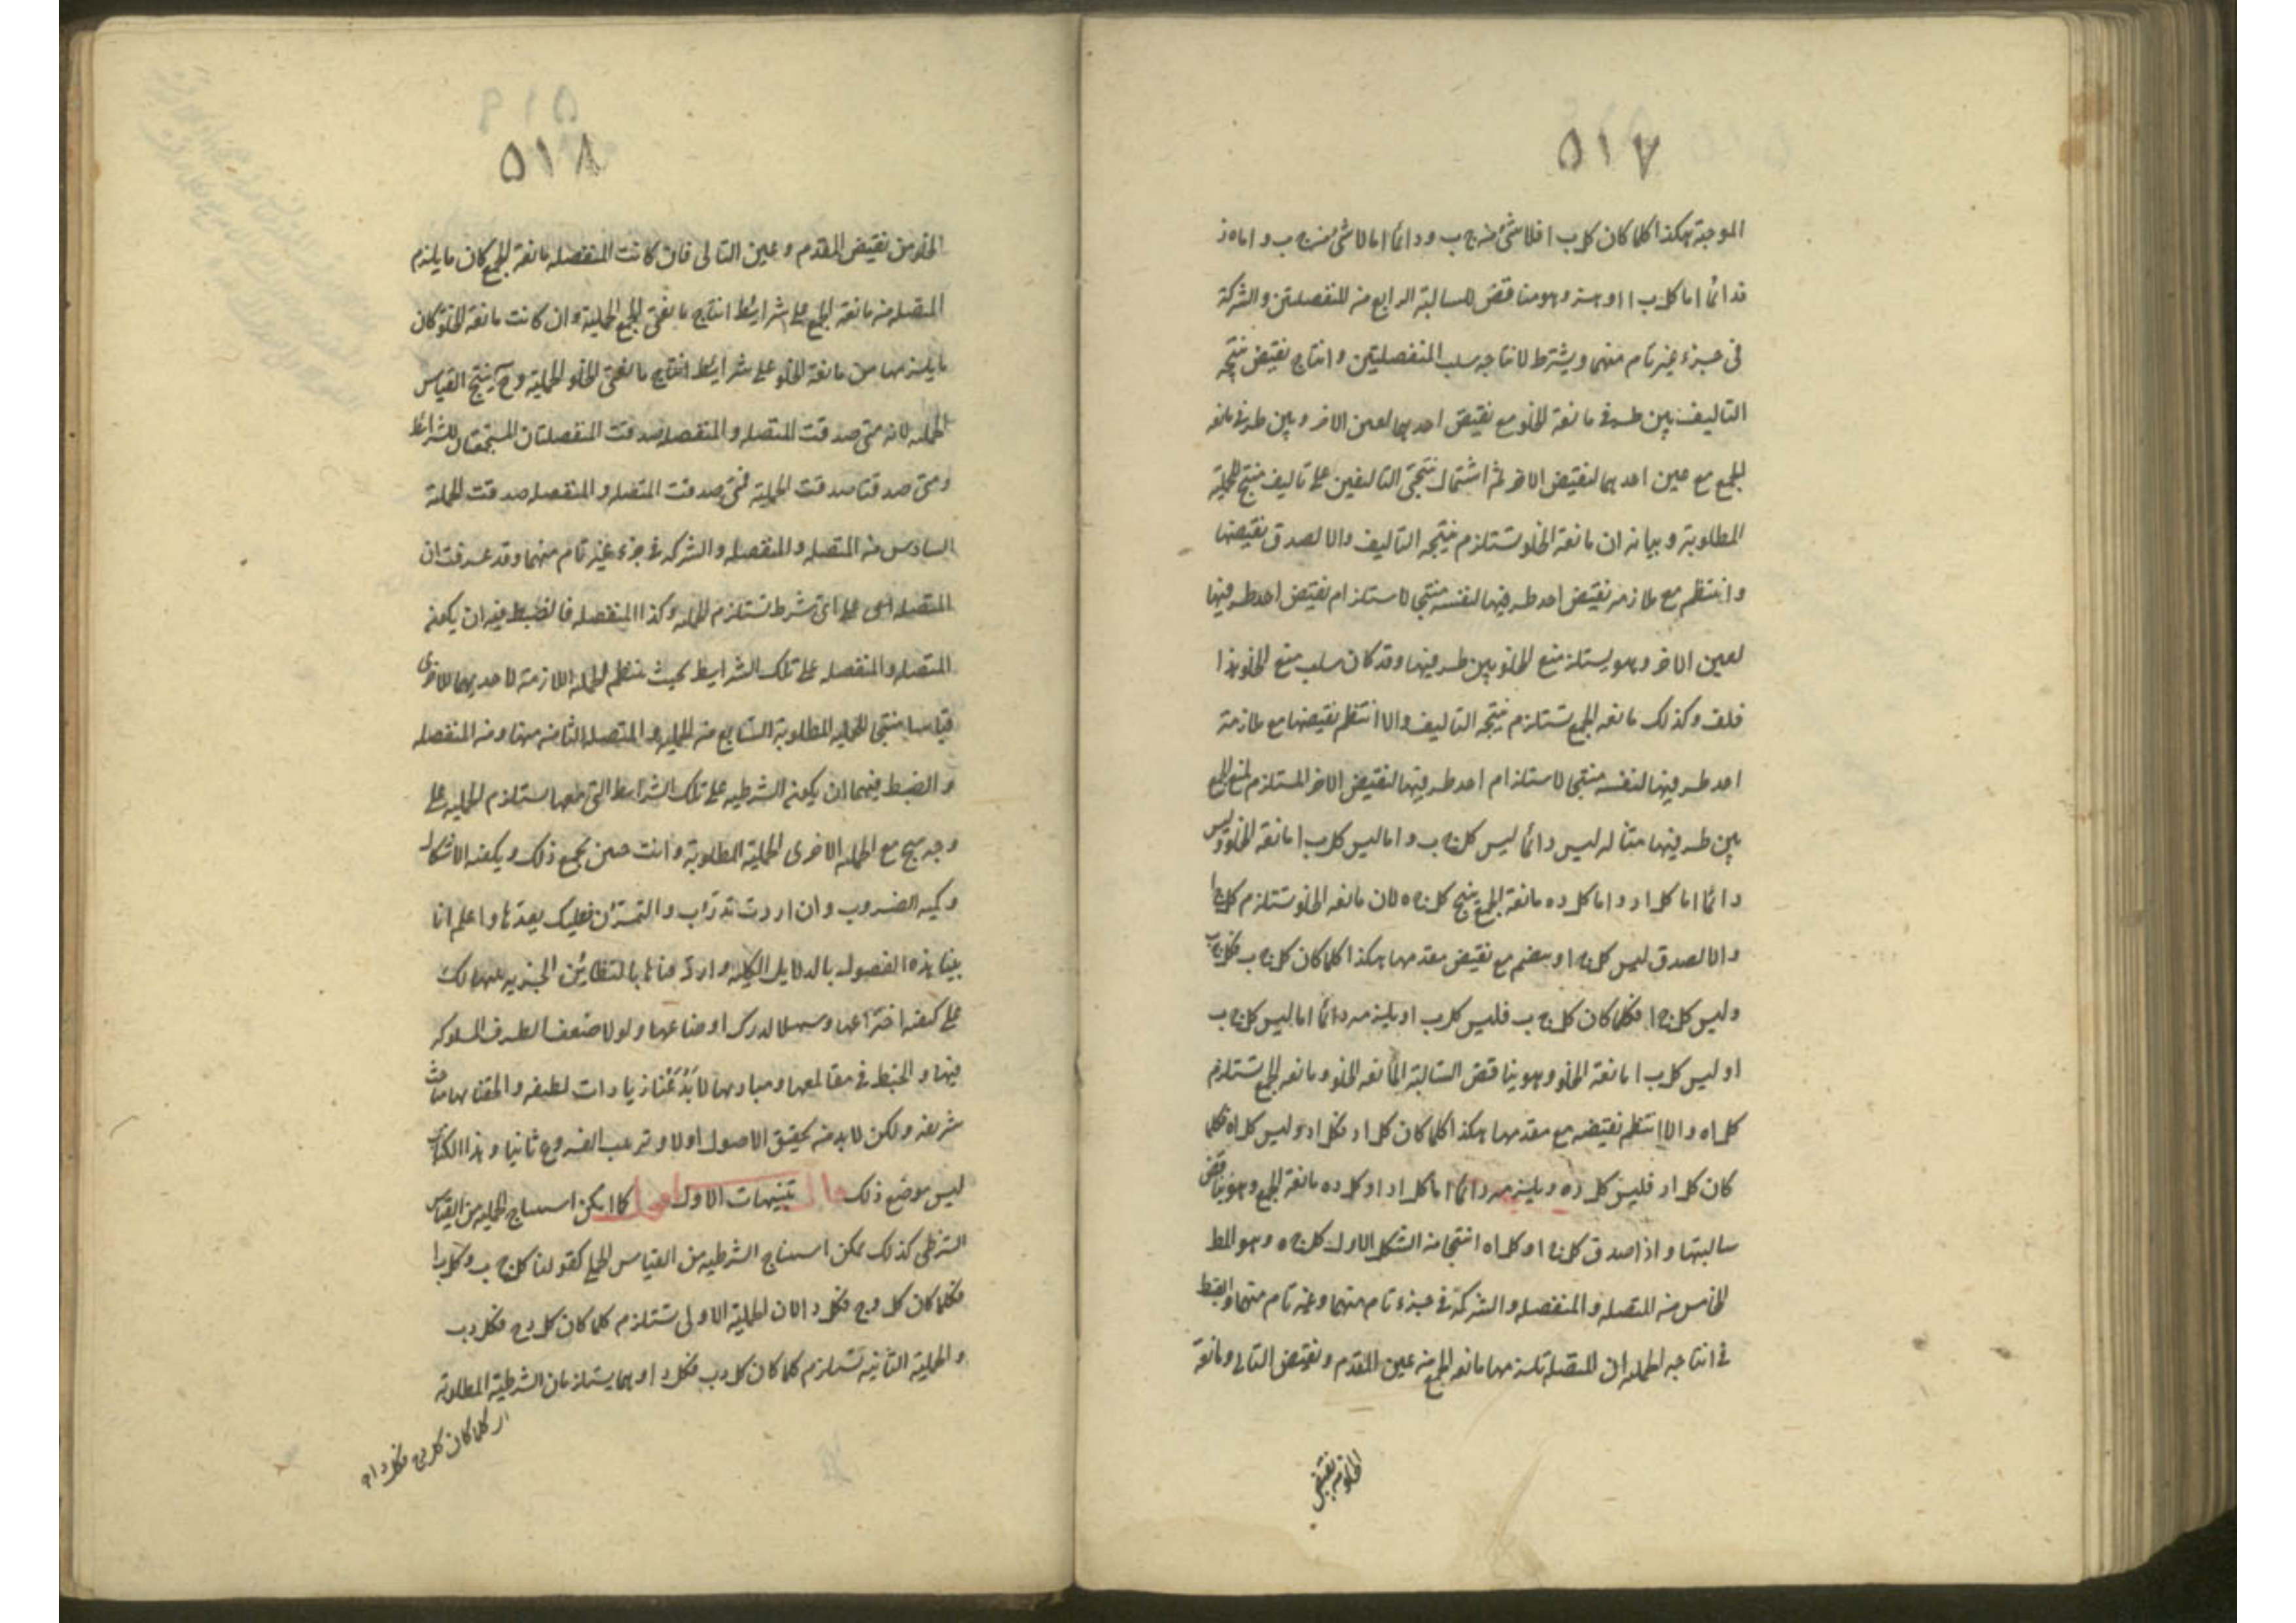 ٥١٧
الموجبة هكذا كلما كان كل ب ا فلا شئ من ج ب ودائما اما لا شئ من ج ب و اما ه ز
فدائما اما كل ب ا او ه ز وهو مناقض للسالبة الرابع من المنفصلتين والشركة
فى جزء غير تام منهما ويشترط لانتاجه سلب المنفصلتين و انتاج نقيض نتيجة
التاليف بين طرفى مانعة الخلو مع نقيض احديهما لعين الاخر و بين طرفى مانعة
الجمع مع عين احديهما لنقيض الاخر ثم اشتمال نتيجتى التاليفين على تاليف منتج للحملية
المطلوبة وبيانه ان مانعة الخلو تستلزم نتيجة التاليف والا لصدق نقيضها
وانتظم مع ملازمة نقيض احد طرفيها لنفسه منتجا لاستلزام نقيض احد طرفيها
لعين الاخر وهو يستلزم منع الخلو بين طرفيها وقد كان سلب منع الخلو هذا
خلف وكذلك مانعة الجمع تستلزم نتيجة التاليف والا انتظم نقيضها مع ملازمة
احد طرفيها لنفسه منتجا لاستلزام احد طرفيها لنقيض الاخر المستلزم لمنع الجمع
بين طرفيها مثاله ليس دائما ليس كل ج ب واما ليس كل ب ا مانعة الخلو وليس
دائما اما كل ا د واما كل د ه مانعة الجمع ينتج كل ج ه لان مانعة الخلو تستلزم كل ج ا
والا لصدق ليس كل ج ا وينضم مع نقيض مقدمها هكذا كلما كان كل ج ب فكل ج ب
وليس كل ج ا فكلما كان كل ج ب فليس كل ب ا ويلزمه دائما اما ليس كل ج ب
او ليس كل ب ا مانعة الخلو وهو يناقض السالبة المانعة الخلو ومانعة الجمع تستلزم
كل ا ه والا انتظم نقيضه مع مقدمها هكذا كلما كان كل ا د فكل ا د وليس كل ا ه فكلما
كان كل ا د فليس كل د ه ويلزمه دائما اما كل ا د او كل د ه مانعة الجمع وهو يناقض
سالبتها واذا صدق كل ج ا وكل ا ه انتجا من الشكل الاول كل ج ه وهو المط
الخامس من المتصلة و المنفصلة والشركة فى جزء تام منهما وغير تام منهما والضبط
فى انتاجه الحملية ان المتصلة تلزمها مانعة الجمع من عين المقدم و نقيض التالى ومانعة
الخلو من نقيض
٥١٨
الخلو من نقيض المقدم وعين التالى فان كانت المنفصلة مانعة الجمع كان ما يلزم
المتصلة من مانعة الجمع على شرايط انتاج مانعتى الجمع الحملية وان كانت مانعة الخلو كان
ما يلزمها من مانعة الخلو على شرايط انتاج مانعتى الخلو الحملية وح ينتج القياس
الحملية لانه متى صدقت المتصلة و المنفصلة صدقت المنفصلتان المستجمعتان للشرائط
ومتى صدقتا صدقت الحملية فمتى صدقت المتصلة و المنفصلة صدقت الحملية
السادس من المتصلة و المنفصلة والشركة فى جزء غير تام منهما وقد عرفت ان
المتصلة على اى شرط تستلزم الحملية وكذا المنفصلة فالضبط فيه ان يكون
المتصلة والمنفصلة على تلك الشرايط بحيث ينتظم الحملية اللازمة لاحديهما للاخرى
قياسا منتجا للحملية المطلوبة السابع من الحملية و المتصلة الثامن منها ومن المنفصلة
والضبط فيهما ان يكون الشرطية على تلك الشرايط التى معها يستلزم الحملية على
وجه ينتج مع الحملية الاخرى الحملية المطلوبة وانت حين تجمع ذلك وكيفية الاشكال
وكمية الضروب وان اردت تدراب والتمرن فعليك بعدها واعلم انا
بينا هذه الفصول بالدلايل الكلية واردفناها بالنظائر الجزئية
على كيفية اختراعها وسهلا لدرك اوضاعها ولولا ضعف الطرف المسلوكة
فيها و الخبط فى مقالعها ومباديها لابدعنا زيادات لطيفة و الحقنا بها مباحث
شريفة ولكن لا بد من تحقيق الاصول اولا وترعيب الفروع ثانيا وهذا الكتاب
ليس موضع ذلك قال تنبيهات الاول اقول كما امكن استنتاج الحملية من القياس
الشرطى كذلك يمكن استنتاج الشرطية من القياس الحملى كقولنا كل ج ب وكل ب ا
فكلما كان كل د ج فكل د ا لان الحملية الاولى تستلزم كلما كان كل د ج فكل د ب
والحملية الثانية تستلزم كلما كان كل د ب فكل د ا وهما يستلزمان الشرطية المطلوبة
كلما كان كل د ج فكل د ا